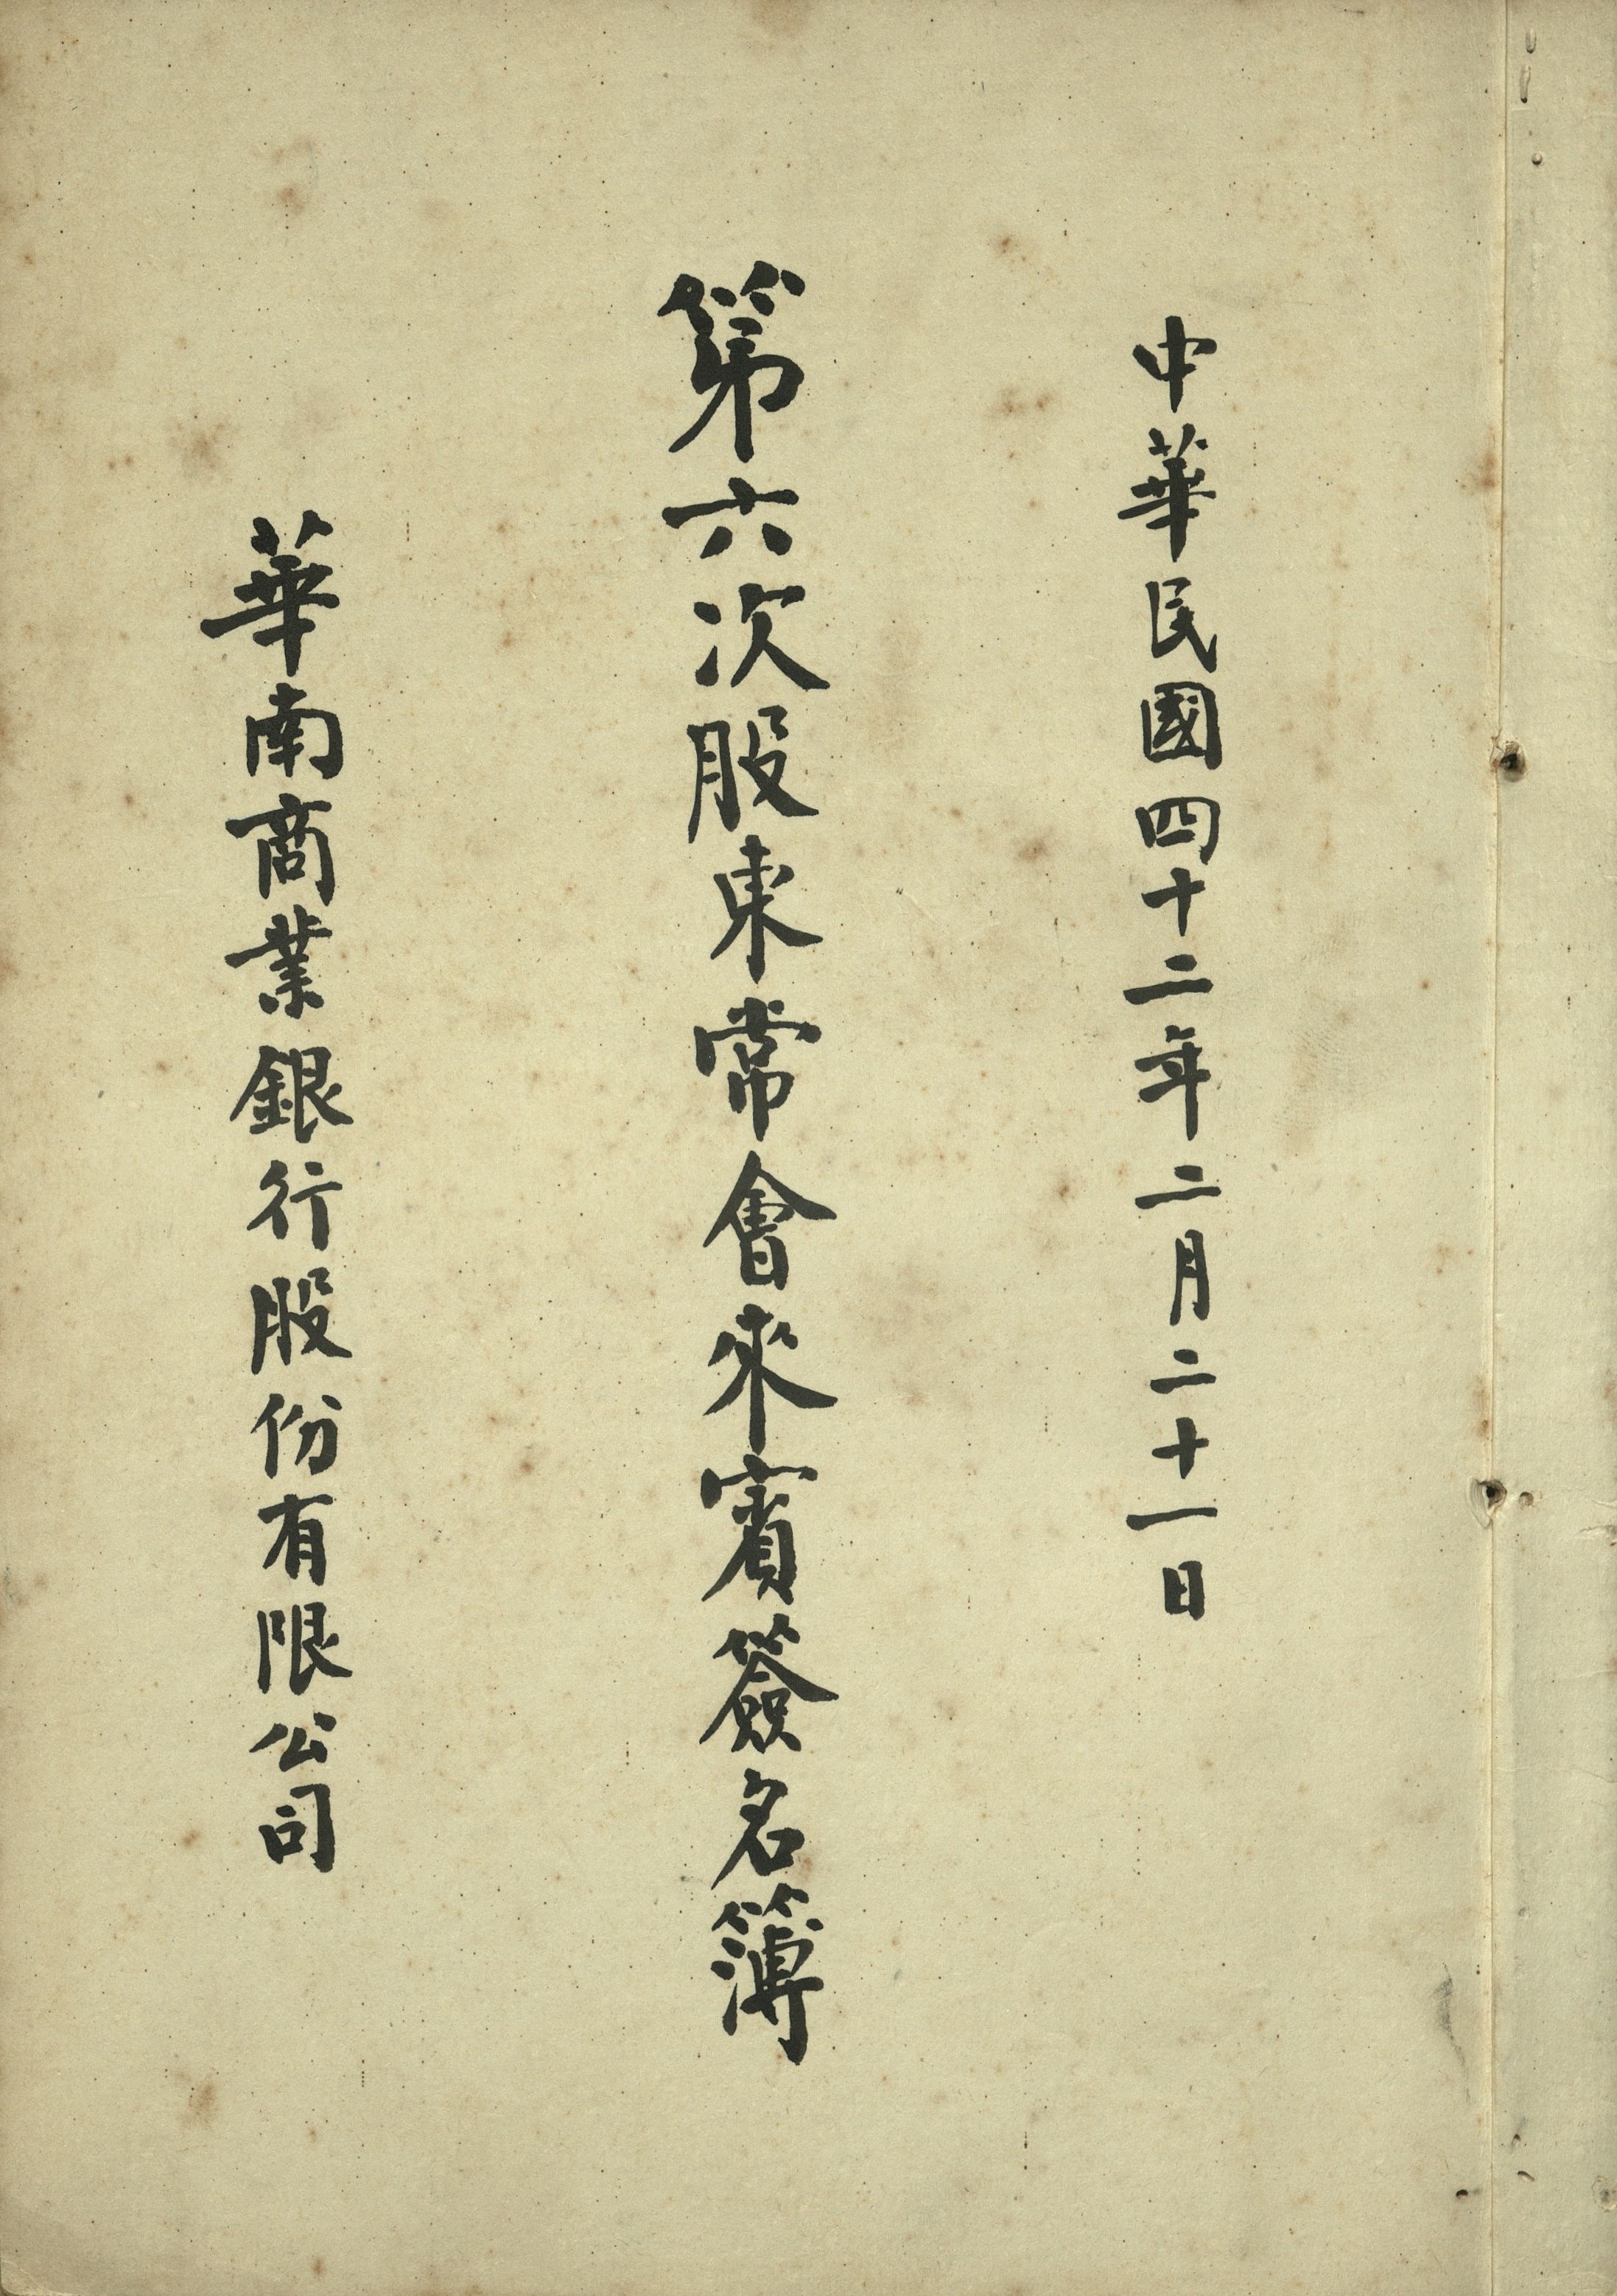 中華民國四十二年二月二十一日
第六次股東常會來賓簽名簿
華南商業銀行股份有限公司